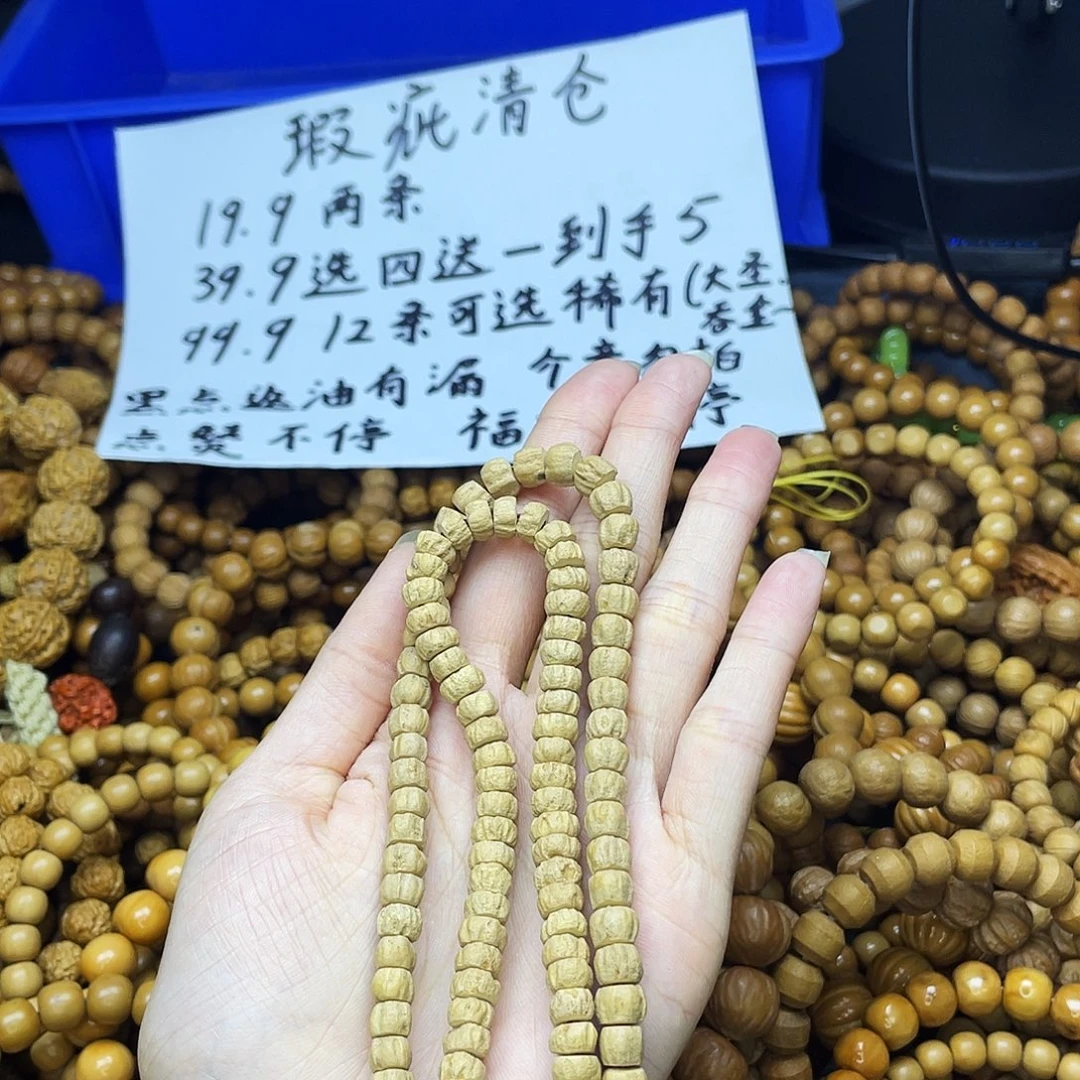 瑕疵清仓
19.9 两条
39.9选四送一到手5
99.9 12条可选稀有(大圣
吞金
黑点返油有漏 个 拍
点髪不停 福 停